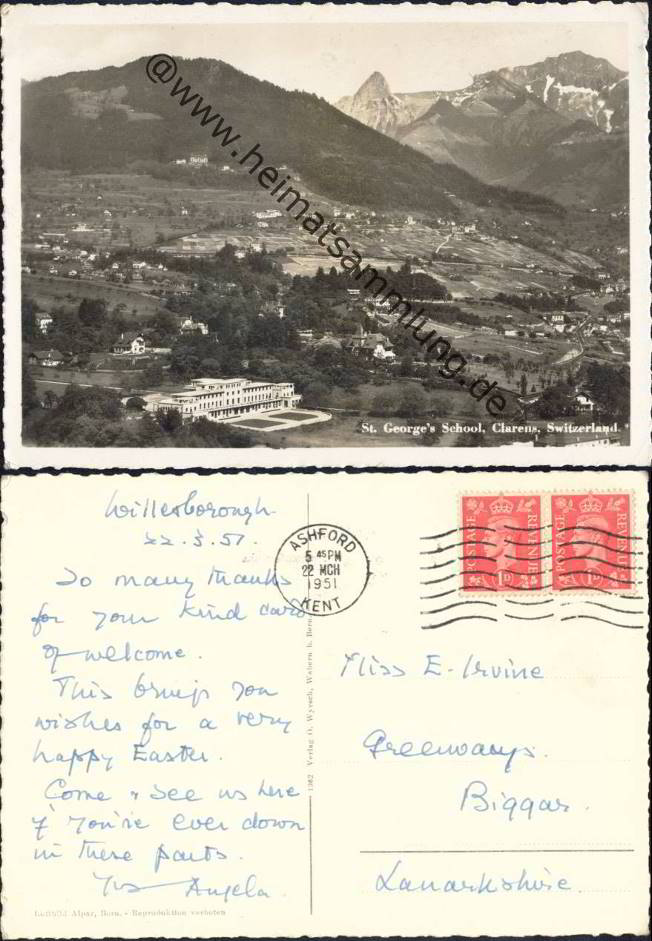 @www.heimatsammlung.de
St. George's School, Clarens, Switzerland.
Willesborough
22.3.51.
So many thanks
for your kind card
of welcome.
This brings you
wishes for a very
happy Easter.
Come & see us here
if you're ever down
in these parts.
Yrs Angela.
Luftbild Alpar, Bern. - Reproduktion verboten
1362 Verlag O. Wyrsch, Wabern b. Bern
ASHFORD
5 45 PM
22 MCH
1951
KENT
POSTAGE REVENUE
1D
POSTAGE REVENUE
1D
Miss E. Irvine
Greenways.
Biggar.
Lanarkshire.